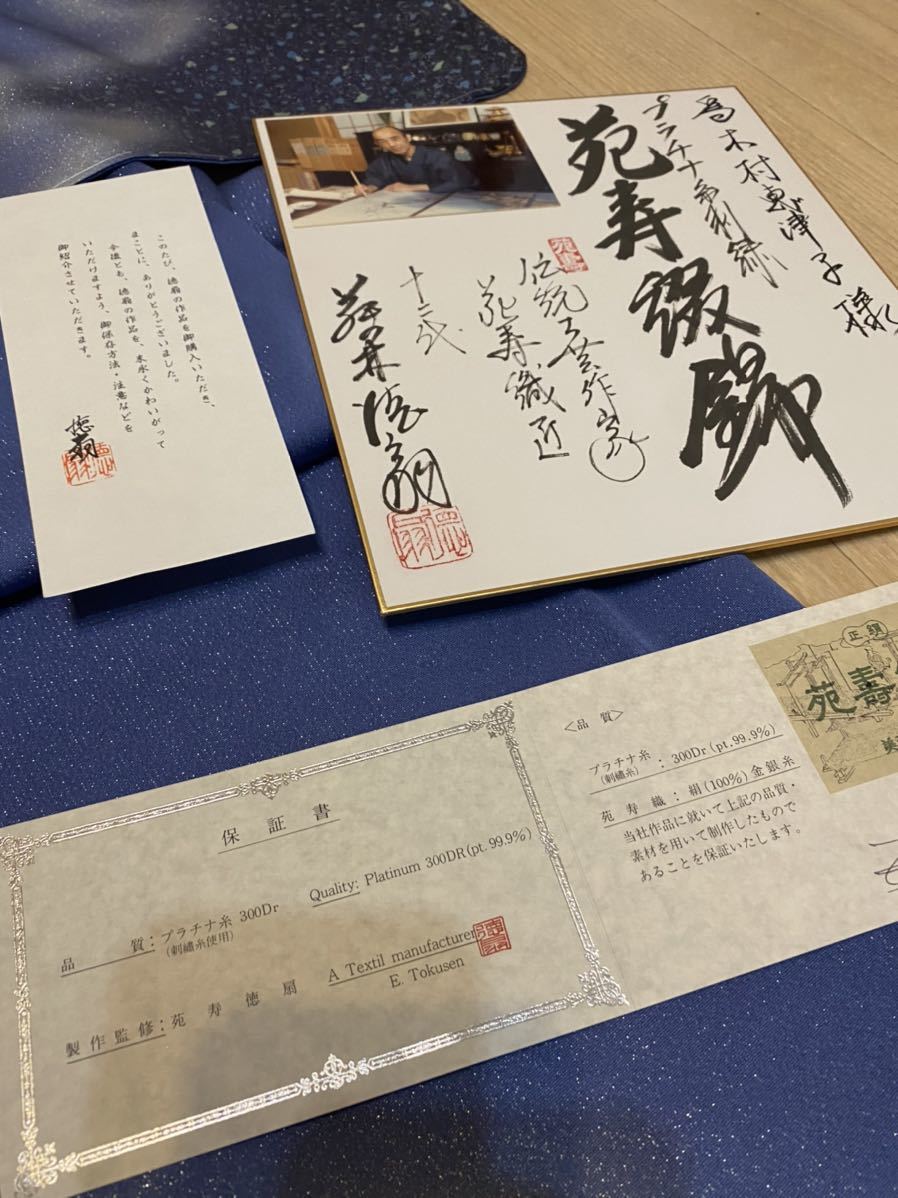 このたび、徳扇の作品を御購入いただき、
まことに、ありがとうございました。
今後とも、徳扇の作品を、末永くかわいがって
いただけますよう、御保存方法・注意などを
御紹介させていただきます。
徳扇
為 木村恵津子 様
プラチナ刺繍
苑寿綴錦
伝統工芸作家
苑寿織匠
十二代
保証書
品質:プラチナ糸 300Dr
(刺繡糸使用)
Quality: Platinum 300DR (pt. 99.9%)
製作監修:苑寿徳扇
A Textil manufacturer
E. Tokusen
〈品質〉
プラチナ糸:300Dr (pt. 99.9%)
(刺繡糸)
苑寿織:絹(100%)金銀糸
当社作品に就いて上記の品質・
素材を用いて制作したもので
あることを保証いたします。
正絹
苑壽
美